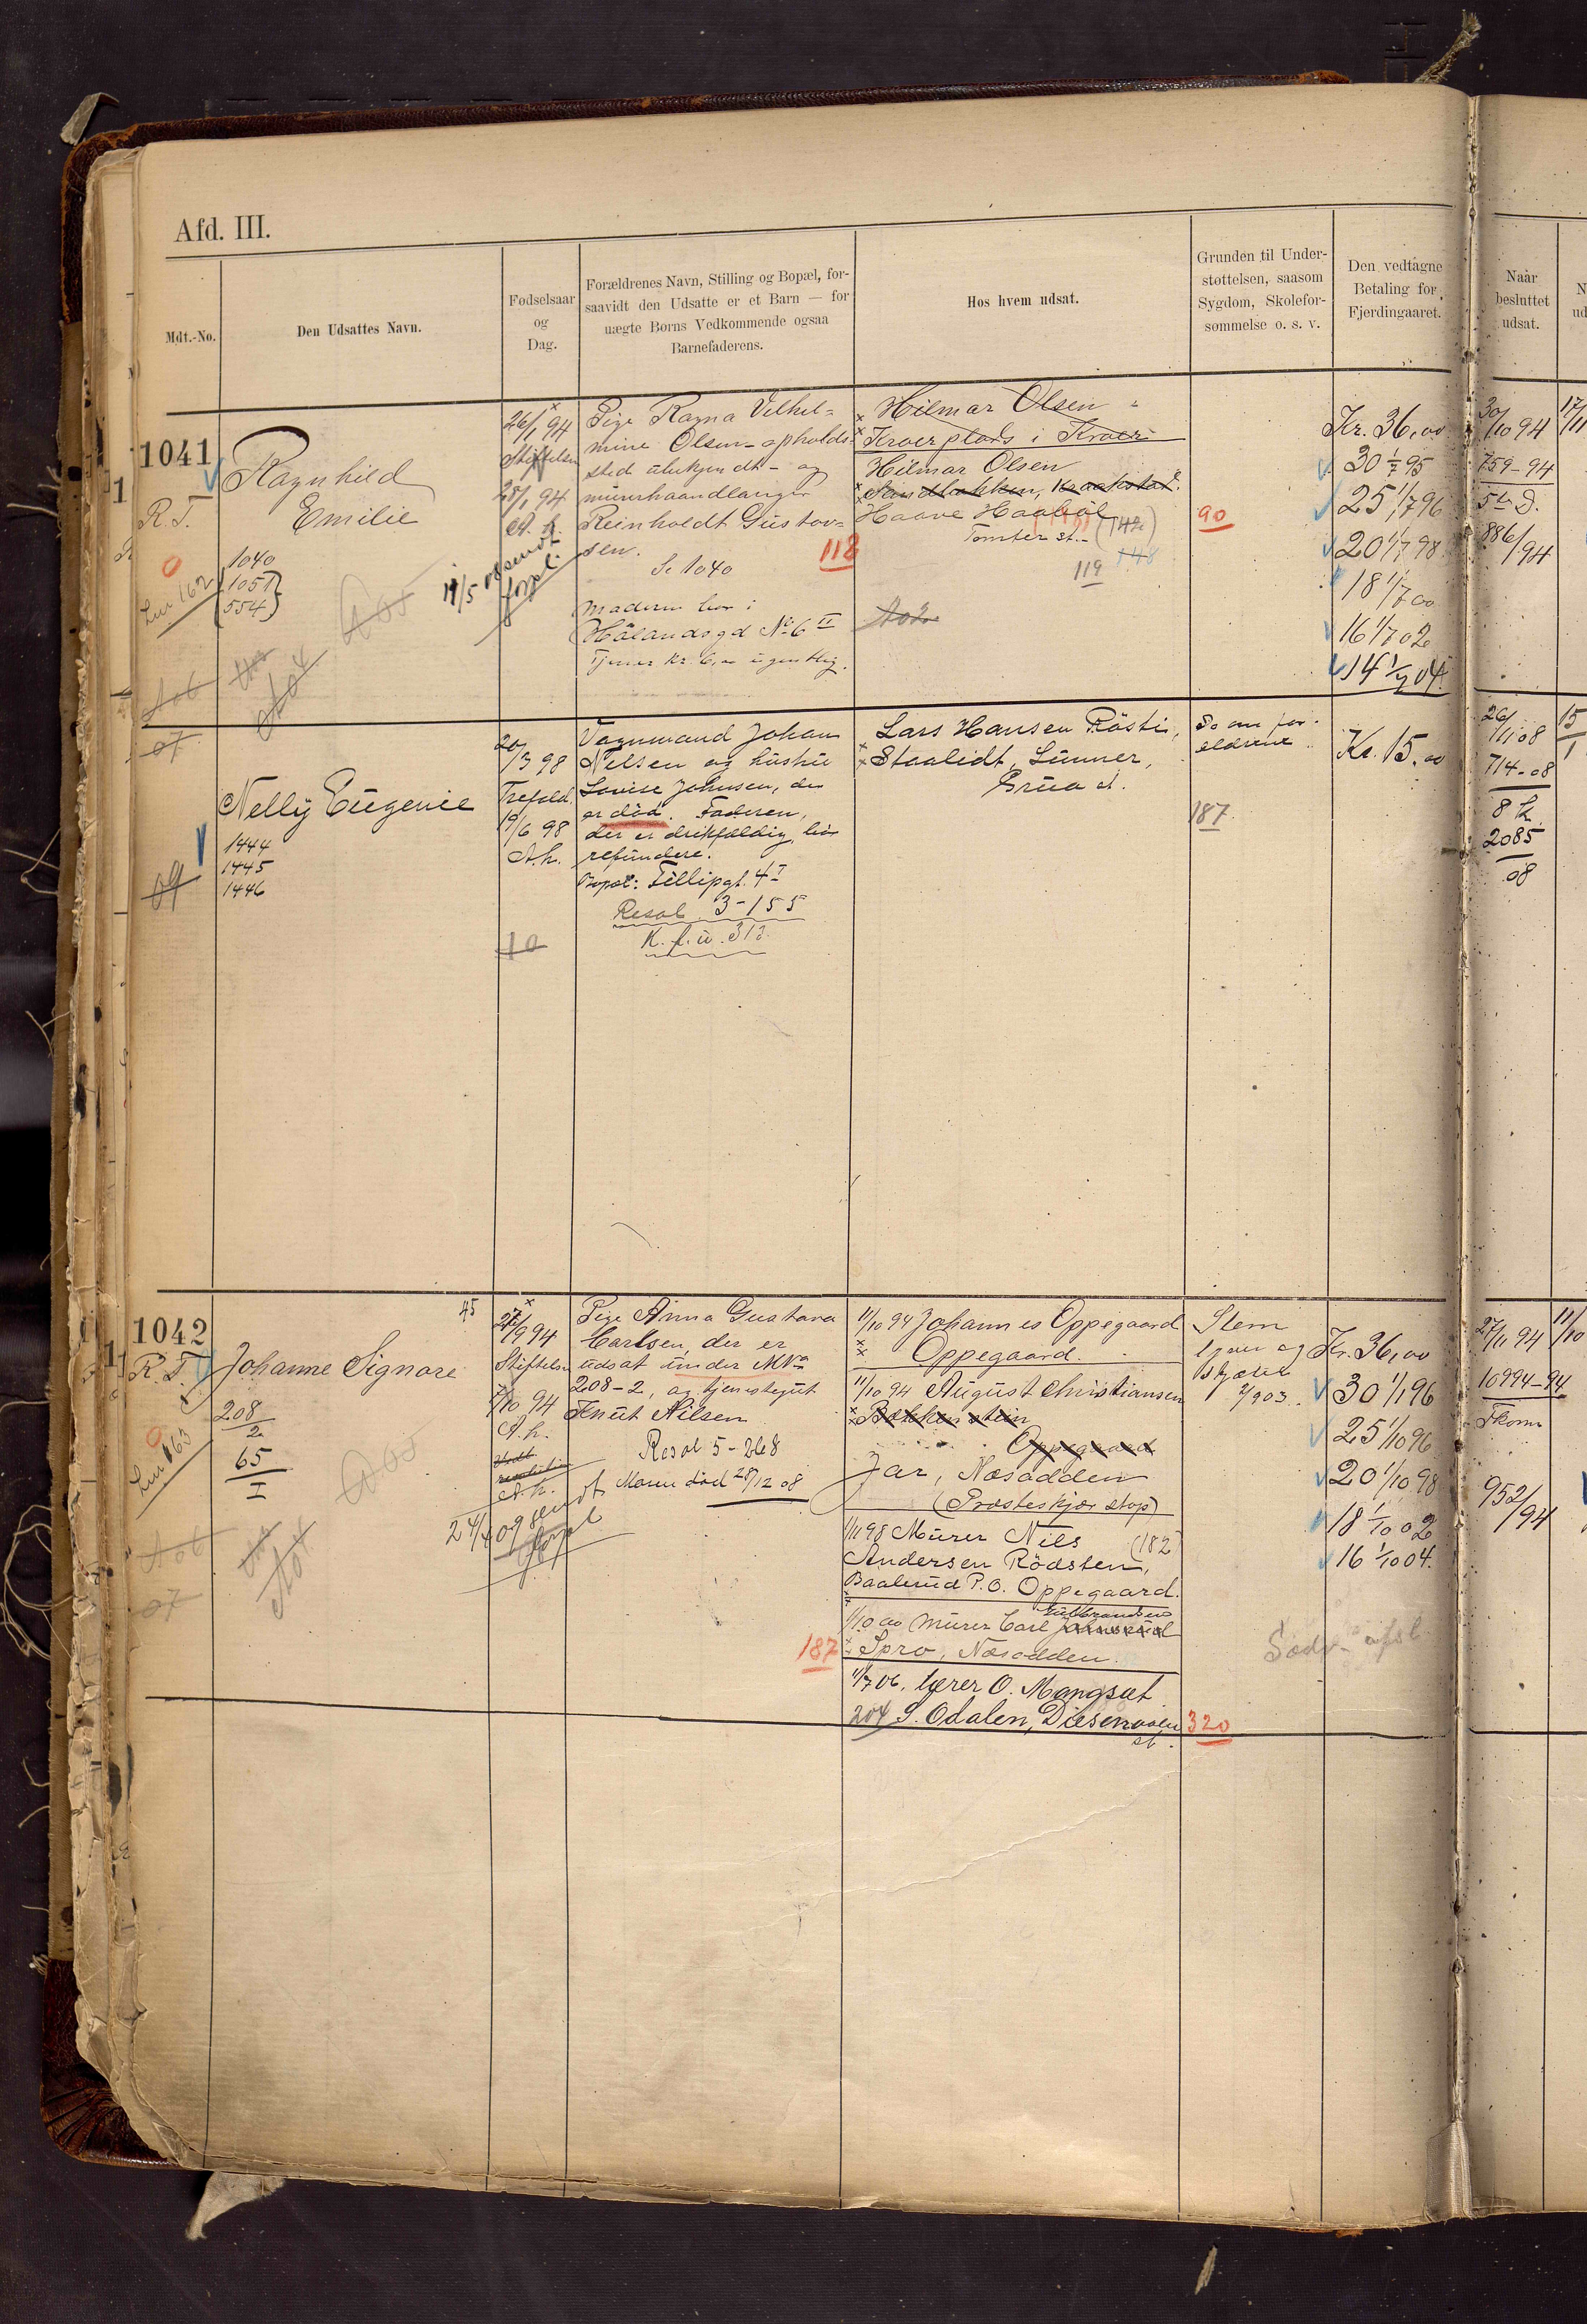 Afd. III.
Mdt.-No.
Den Udsattes Navn.
Fødselsaar
og
Dag.
Forældrenes Navn, Stilling og Bopæl, for-
saavidt den Udsatte er et Barn — for
uægte Børns Vedkommende ogsaa
Barnefaderens.
Hos hvem udsat.
Grunden til Under-
støttelsen, saasom
Sygdom, Skolefor-
sømmelse o. s. v.
Den vedtagne
Betaling for
Fjerdingaaret.
Naar
besluttet
udsat.
1041
R. T.
0
162
A06
07
Ragnhild
Emilie
1040
1051
554
A05
A04
26/1 94
Stiftelsen
28/1 94
A. h.
19/5 09 sendt
forpl.
Pige Ragna Vilhel-
mine Olsen - opholds-
sted ubekjendt - og
murerhaandlanger
Reinholdt Gustav-
sen.
118
Se 1040
Moderen bor i
Hölandsgd No 6 II
Tjener Kr. 6,00 ugentlig.
Hilmar Olsen
Kroerplads i Kroer
Hilmar Olsen
Sandbakken, Kraakstad
Haave Haabøl
Tomter st.
119
148
A02
90
Kr. 36,00
30 1/7 95
25 1/7 96
20 1/7 98
18 1/7 00
16 1/7 02
14 1/7 04
30/10 94
759-94
5te D.
886/94
17/11
Nelly Eugenie
1444
1445
1446
09
20/3 98
Trefold.
19/6 98
A. h.
10
Vognmand Johan
Nelsen og hustru
Lovise Johnsen, der
er död. Faderen,
der er drikfældig, bör
refundere.
Bopæl: Fillipgt. 4 I
Resol. 3-155
K. f. u. 313
Lars Hansen Rösti,
Staalidt, Lunner,
Grua st.
So om for-
eldrene
187
Kr. 15,00
26/11 08
714-08
8 k
2085
08
15
1
1042
R. T.
0
163
A06
07
45
Johanne Signore
208
2
65
I
A05
A04
27/9 94
Stiftelsen
7/10 94
A. h.
A. h.
24/4 09 sendt
forpl
Pige Anna Gustava
Carlsen, der er
udsat under MNo
208-2, og tjenestegut
Knut Nilsen
Resol 5-268
Moren död 28/12 08
11/10 94 Johannes Oppegaard
Oppegaard.
11/10 94 August Christiansen
Bakkenstein
Oppegaard
Jar, Næsodden
(Præsteskjær stop)
1/11 98 Murer Nils (182)
Andersen Rödsten,
Baalerud P.O. Oppegaard.
Gulbrandsen
1/10 00 Murer Carl
187 Spro, Næsodden.
1/7 06. lærer O. Mangset
204 S. Odalen, Disenaaen
st.
320
Slem
i
og
skjælet
2/903.
Kr. 36,00
30 1/1 96
25 1/10 96
20 1/10 98
18 1/10 02
16 1/10 04.
27/1 94
10994-94
Fkom
952/94
11/10